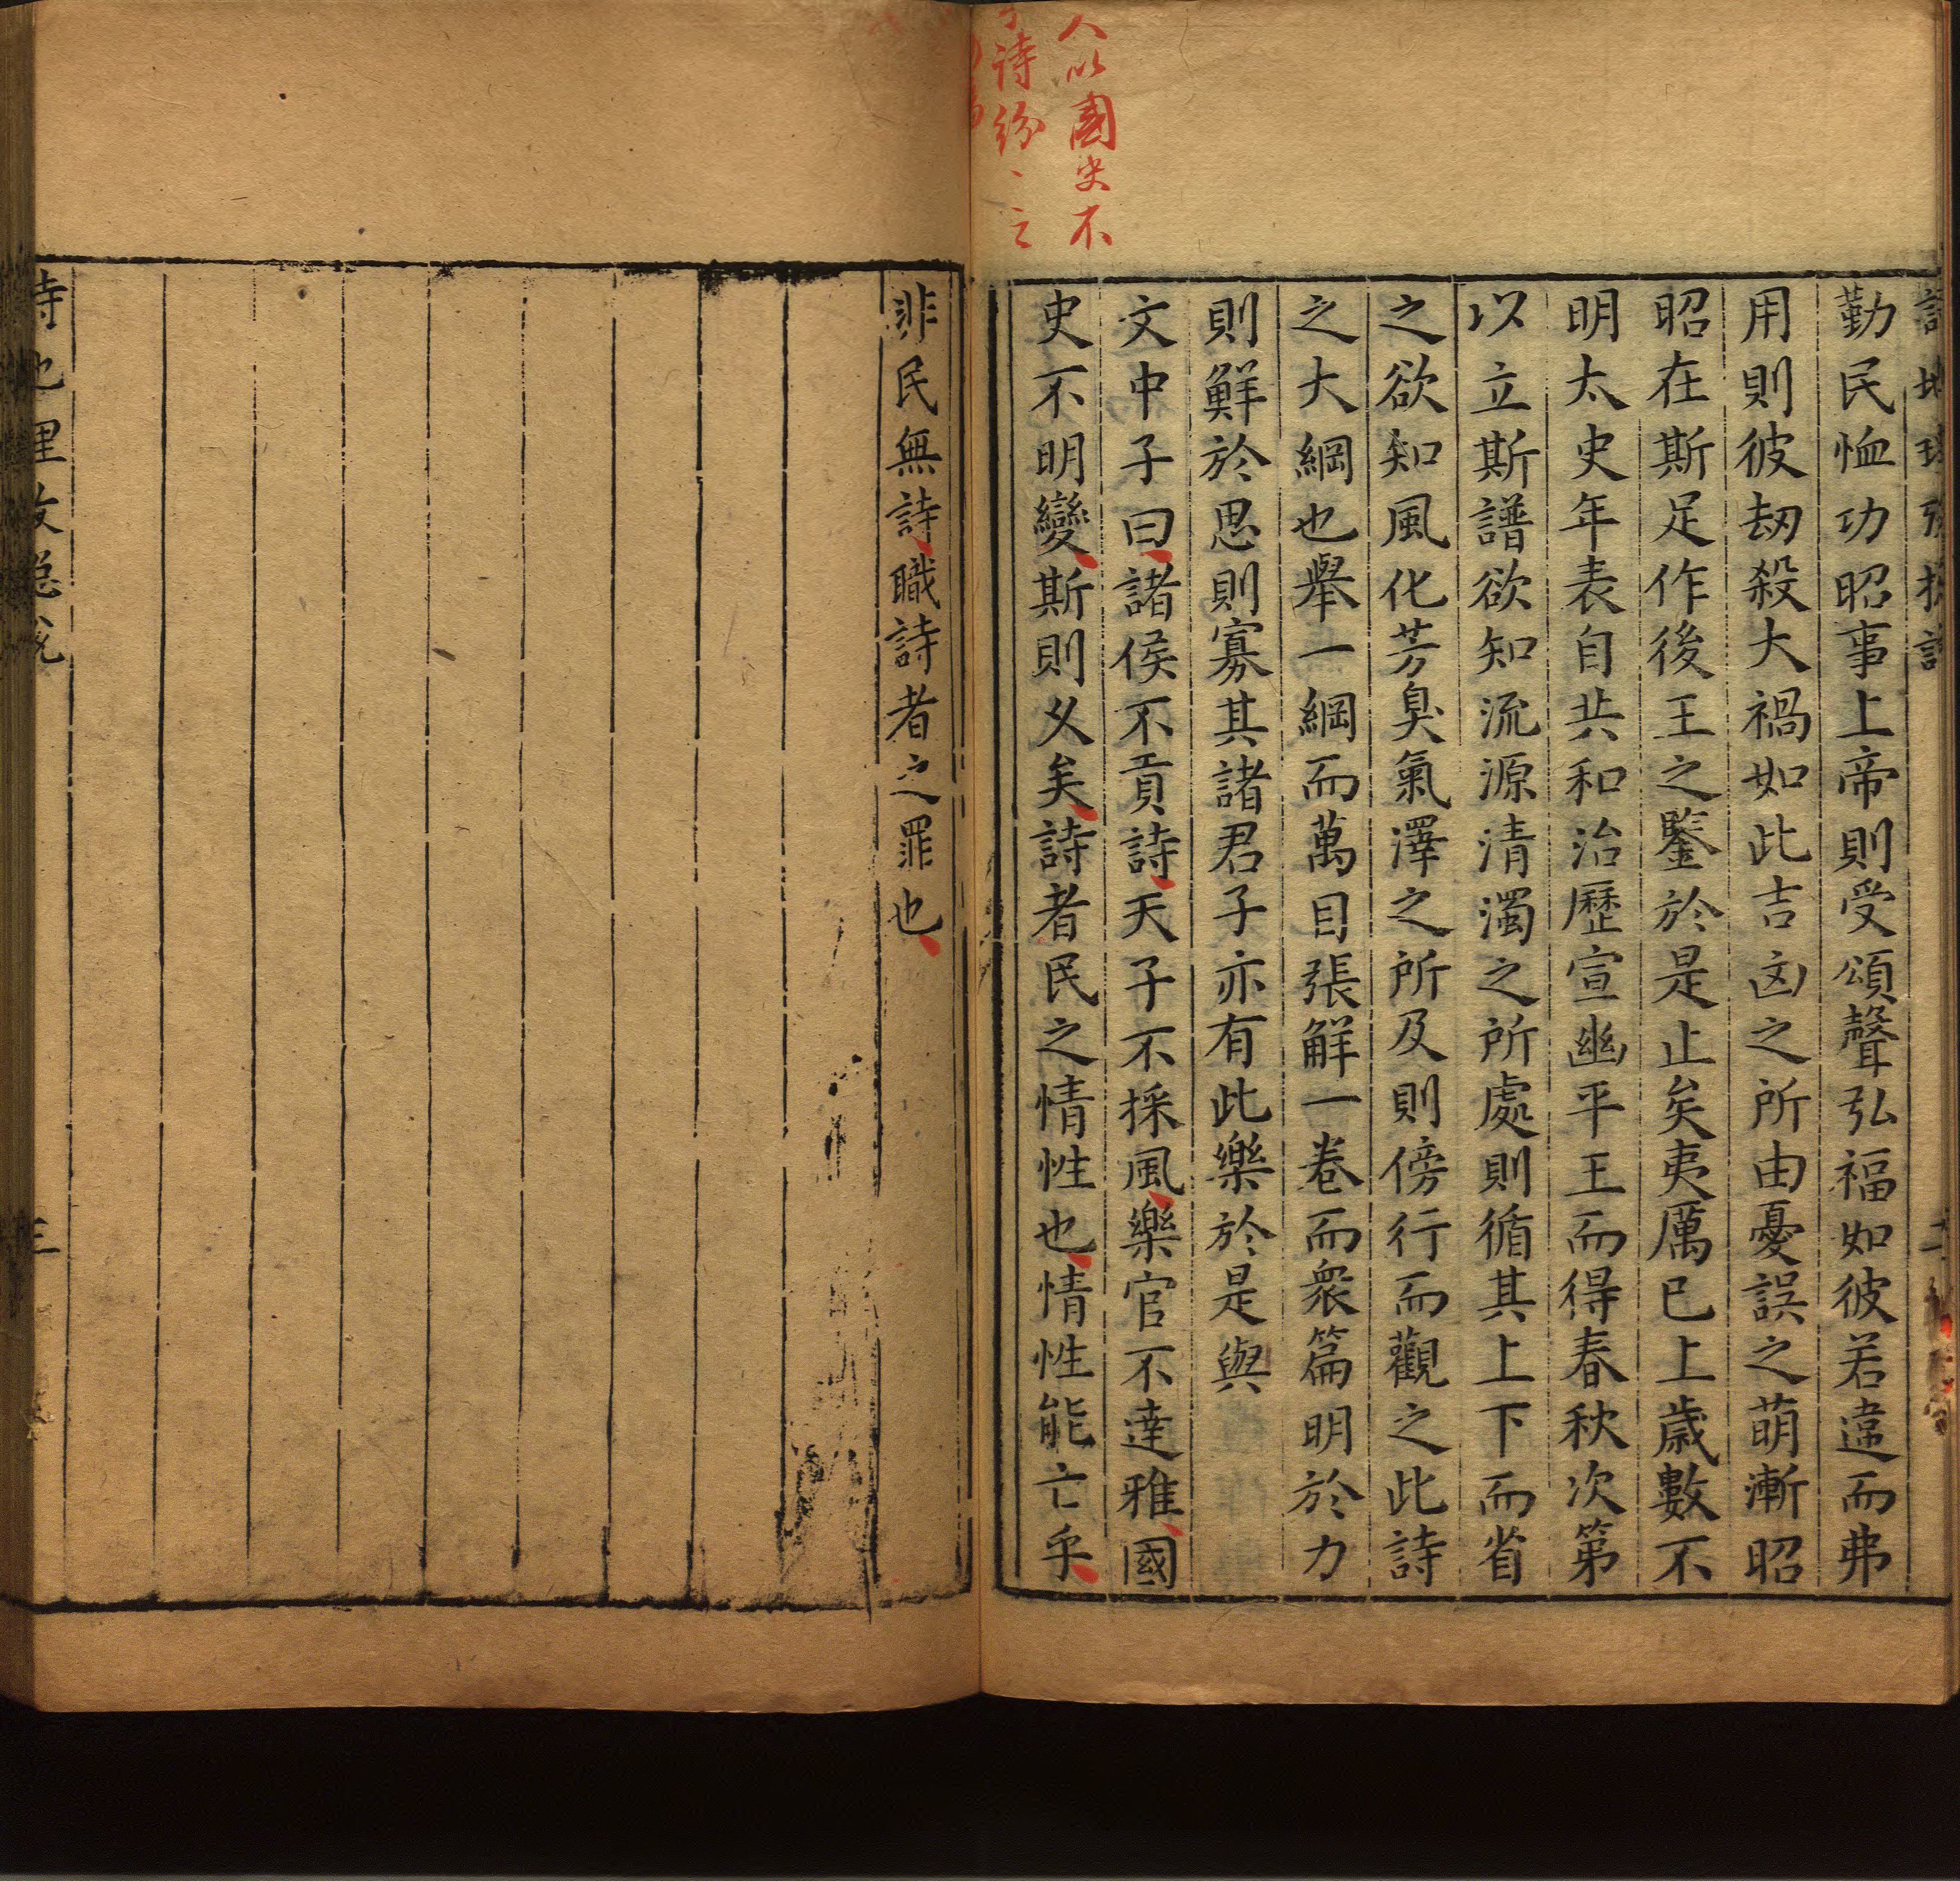 人以國史不
詩紛、之
勤民恤功昭事上帝則受頌聲弘福如彼若違而弗
用則彼刼殺大禍如此吉凶之所由憂誤之萌漸昭
昭在斯足作後王之鑒於是止矣夷厲已上歲數不
明太史年表自共和治歷宣幽平王而得春秋次第
以立斯譜欲知流源清濁之所處則循其上下而省
之欲知風化芳臭氣澤之所及則傍行而觀之此詩
之大綱也舉一綱而萬目張解一卷而衆篇明於力
則鮮於思則寡其諸君子亦有此樂於是與
文中子曰諸侯不貢詩天子不採風樂官不達雅國
史不明變斯則乆矣詩者民之情性也情性能亡乎
非民無詩職詩者之罪也
詩地理攷總說
三